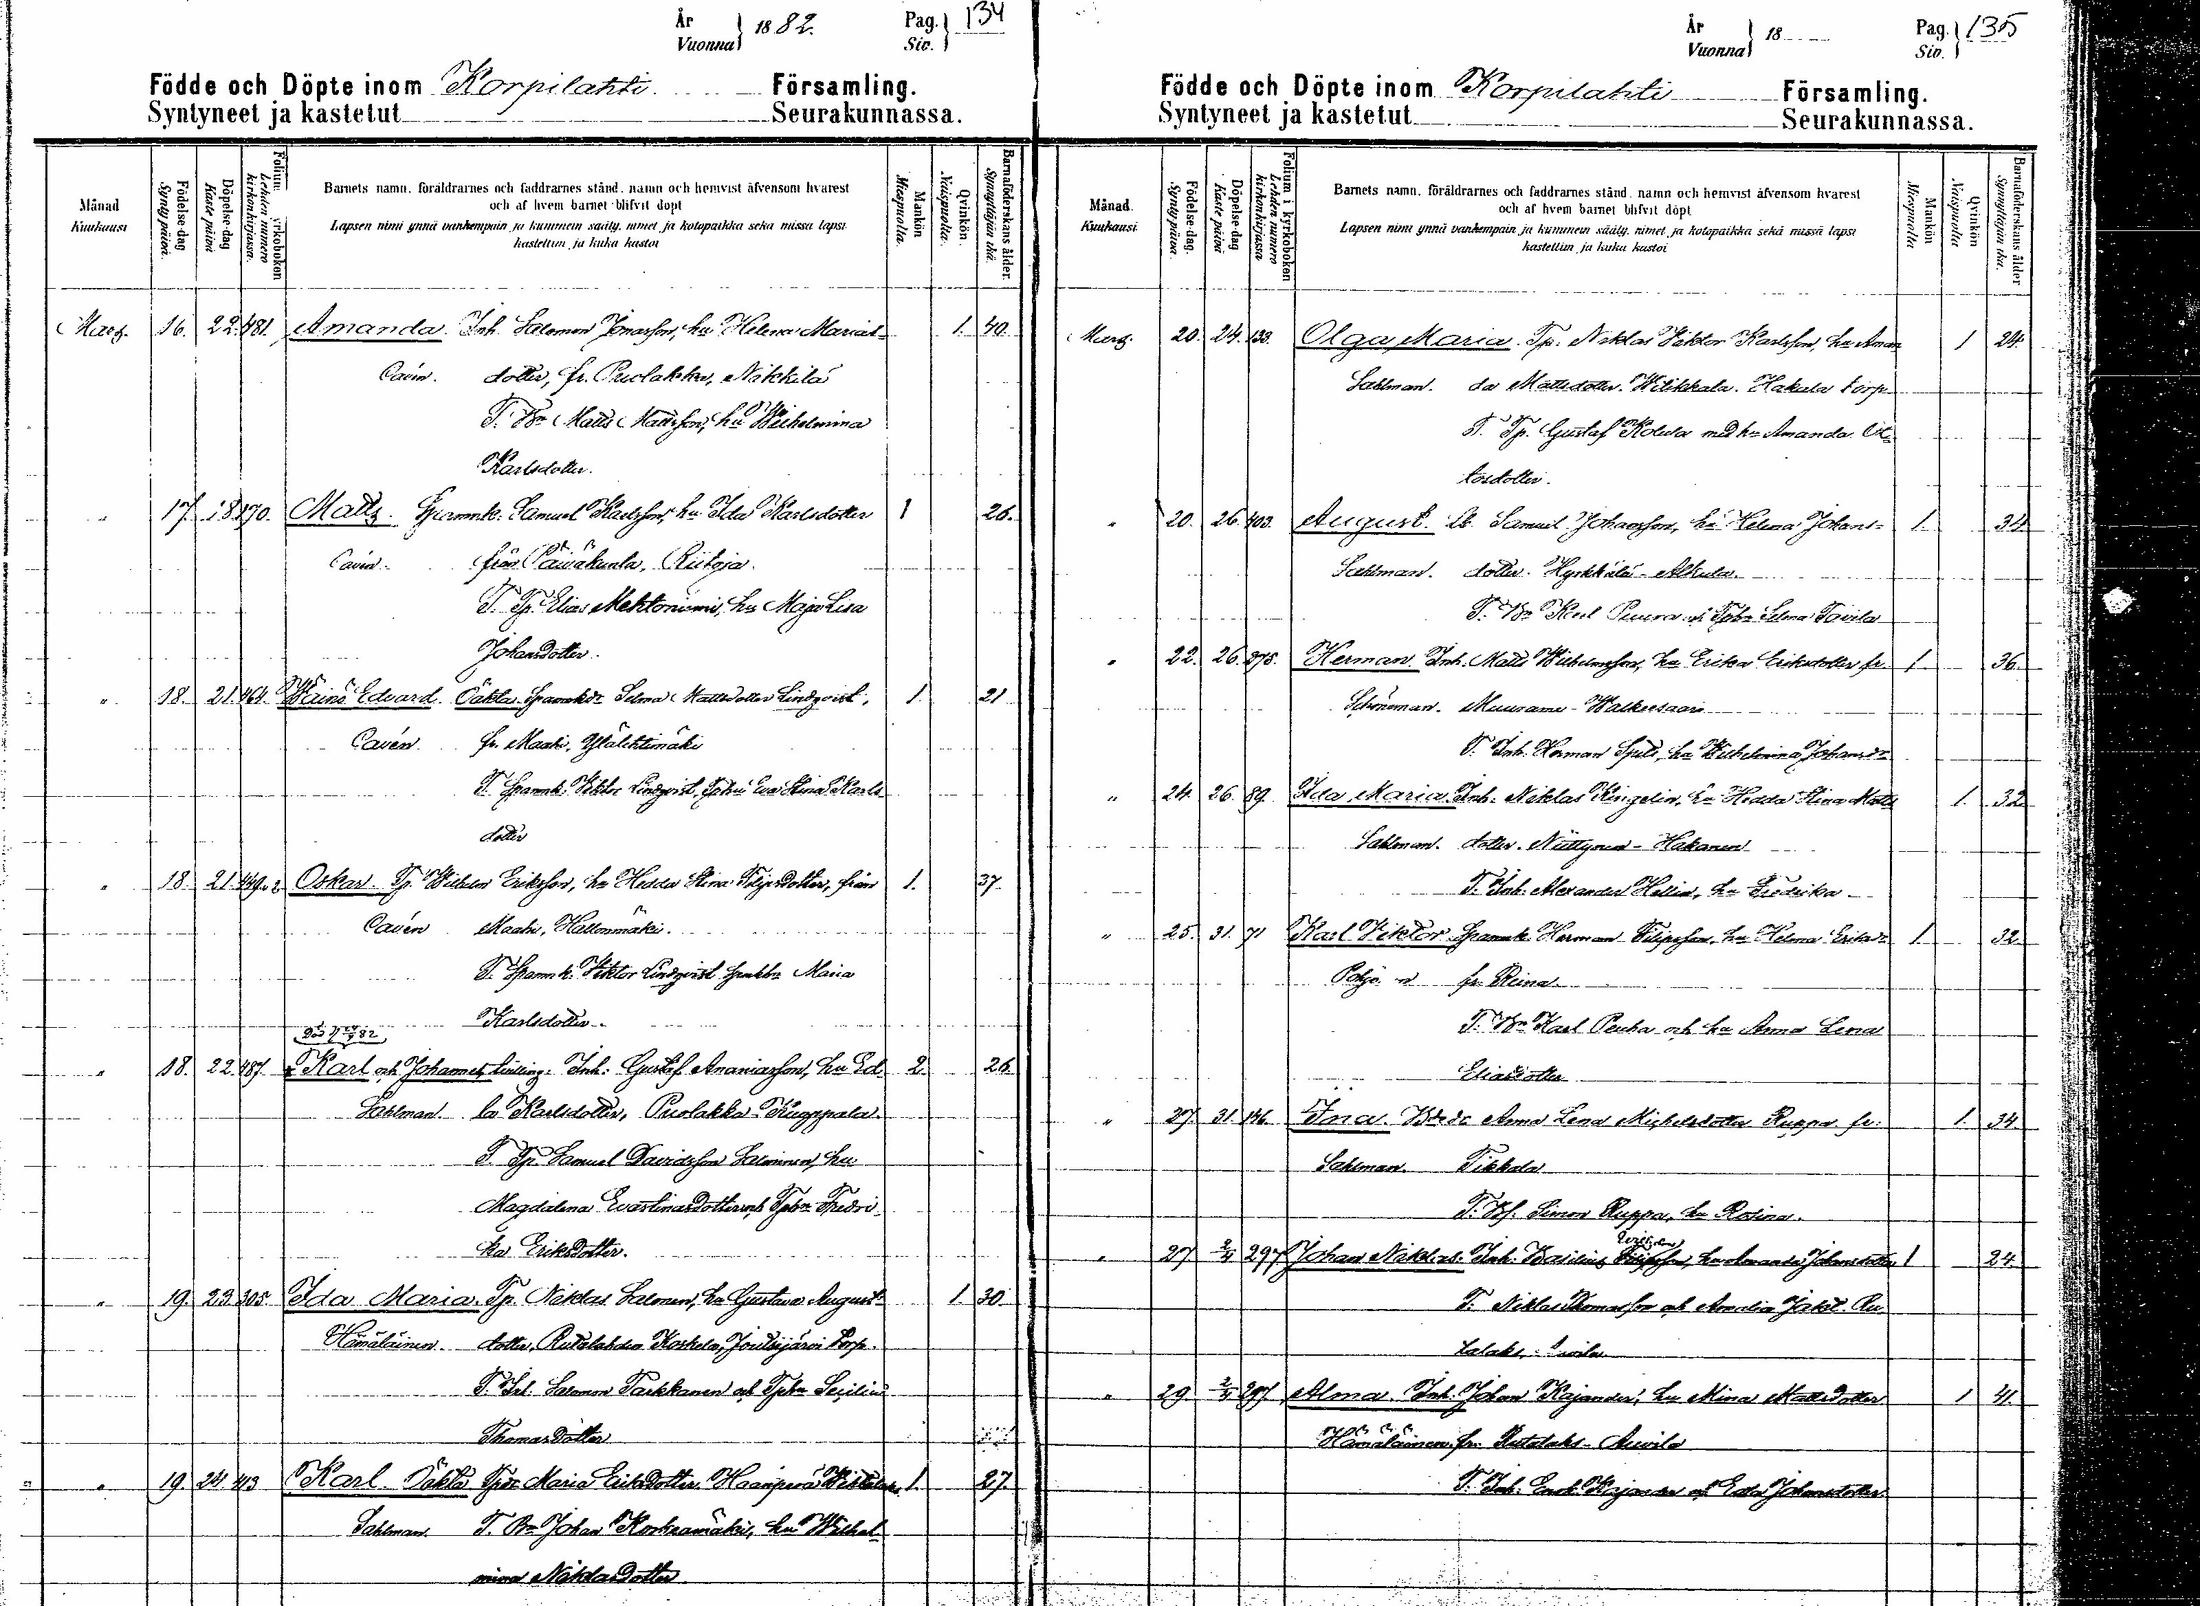 År
Vuonna 1882.
Pag.
Siv. 134
Födde och Döpte inom Korpilahti Församling.
Syntyneet ja kastetut Seurakunnassa.
Månad
Kuukausi
Födelse-dag
Synty päivä.
Döpelse-dag
Kaste päivä
Folium kyrkoboken
Lehden numero kirkonkirjassa.
Barnets namn, föräldrarnes och faddrarnes stånd, namn och hemvist äfvensom hvarest
och af hvem barnet blifvit döpt
Lapsen nimi ynnä vanhempain ja kummein sääty, nimet ja kotopaikka sekä missä lapsi
kastettiin ja kuka kastoi
Mankön
Miespuolia.
Qvinkön
Naispuolia.
Barnaföderskans ålder.
Synnyttäjän ikä.
Mars. 16. 22. 481. Amanda. Inh. Salomon Jonasson, hu Helena Mariast- 1. 40.
Cavén. dotter, fr. Puolakka, Nikkilä
T. Bn Matts Mattsson, hu Wilhelmina
Karlsdotter.
" 17. 18. 170. Matts. Spannk. Samuel Karlsson, hu Ida Karlsdotter 1 26.
Cavén. från Päiväkunta, Riitoja.
T. Tp. Elias Mehtoniemi, hu Maja Lisa
Johansdotter.
" 18. 21. 464. Wäinö Edvard. Oäkta. Selma Mattsdotter Lindqvist, 1. 21
Cavén. fr. Maahi, Ylälehtimäki
T. Spannk. Viktor Lindqvist, Eva Stina Karls
dotter
" 18. 21. 449. Oskar. Tp. Wilhelm Eriksson, hu Hedda Stina Filipsdotter, från 1. 37.
Cavén Maahi, Hallonmäki.
T. Spannk. Viktor Lindqvist Maria
Karlsdotter.
" 18. 22. 487. Karl och Johannes, tvilling. Inh. Gustaf Ananiasson, hu Ed- 2. 26.
Sahlman. la Karlsdotter, Puolakka
T. Tp. Samuel Davidsson Salminen, hu
Magdalena Evastinasdotter och Tpbn Fredri-
ka Eriksdotter.
" 19. 23. 305. Ida Maria. Tp. Niklas Salonen, hu Gustava August- 1. 30.
Hämäläinen. dotter, Rutalahden Koskela, Joutsijärvi torp.
T. Inh. Salomon Tarkkanen och Tpbn Secilia
Thomasdotter
" 19. 24. 413 Karl. Oäkta Maria Eriksdotter, Haanperä 1. 27.
Sahlman. T. Bn Johan Koskenmäki, hu Wilhel-
mina Niklasdotter.
År
Vuonna 18
Pag.
Siv. 135
Födde och Döpte inom Korpilahti Församling.
Syntyneet ja kastetut Seurakunnassa.
Månad.
Kuukausi
Födelse-dag.
Synty päivä.
Döpelse-dag
Kaste päivä
Folium i kyrkoboken
Lehden numero kirkonkirjassa
Barnets namn, föräldrarnes och faddrarnes stånd, namn och hemvist äfvensom hvarest
och af hvem barnet blifvit döpt
Lapsen nimi ynnä vanhempain ja kummein sääty, nimet ja kotopaikka sekä missä lapsi
kastettiin ja kuka kastoi
Mankön
Miespuolia
Qvinkön
Naispuolia
Barnaföderskans ålder
Synnyttäjän ikä.
Mars. 20. 24. 133. Olga Maria. Tp. Niklas Viktor Karlsson, hu Aman 1 24.
Sahlman. da Mattsdotter. Witikkala. Hakala torp
T. Tp. Gustaf Kolua med hu Amanda Ot-
tosdotter.
" 20. 26. 403. August. Samuel Johansson, hu Helena Johans- 1. 34
Sahlman. dotter. Hyrkkälä - Alkula.
T. Bn Karl Puura och Tpbn Selma Tavila
" 22. 26. 275. Herman. Inh. Matts Wilhelmsson, hu Erika Eriksdotter fr. 1. 36.
Schöneman. Muurame - Walkeesaari
T. Inh. Herman, hu Wilhelmina Johansdr
" 24. 26. 89. Ida Maria. Inh. Niklas Ringelin, hu Hedda Stina Matts 1. 32
Sahlman. dotter. - Hakanen
T. Inh. Alexander Hellin, hu Fredrika
" 25. 31. 71 Karl Viktor. Spannk. Herman Filipsson, hu Helena Eriksdr 1. 32.
Pohjo fr. Reina.
T. Bn Karl Penha och hu Anna Lena
Eliasdotter
" 27. 31. 146. Ina. Anna Lena Michelsdotter Ruppa fr. 1. 34.
Sahlman. Tikkala
T. Simon Ruppa, hu Rosina.
" 27 2/4 297 Johan Niklas. Inh. Basilius, hu Amanda Johansdotter 1 24
T. Niklas Thomasson och Amalia Jakobsd. Ru-
talaks.
" 29. 2/4 297 Alma. Inh. Johan Kajander, hu Mina Mattsdotter 1 41.
Hämäläinen fr. Rutalaks - Auvila
T. Inh. Enok Kajander och Edla Johansdotter